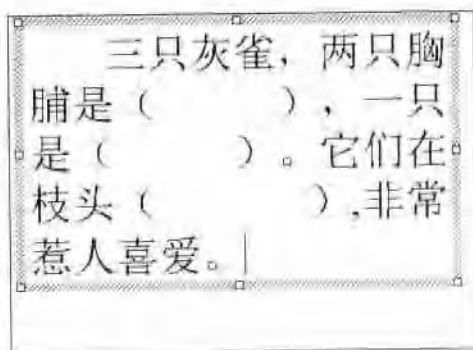 三只灰雀，两只胸
脯是（　　　），一只
是（　　　）。它们在
枝头（　　　）,非常
惹人喜爱。